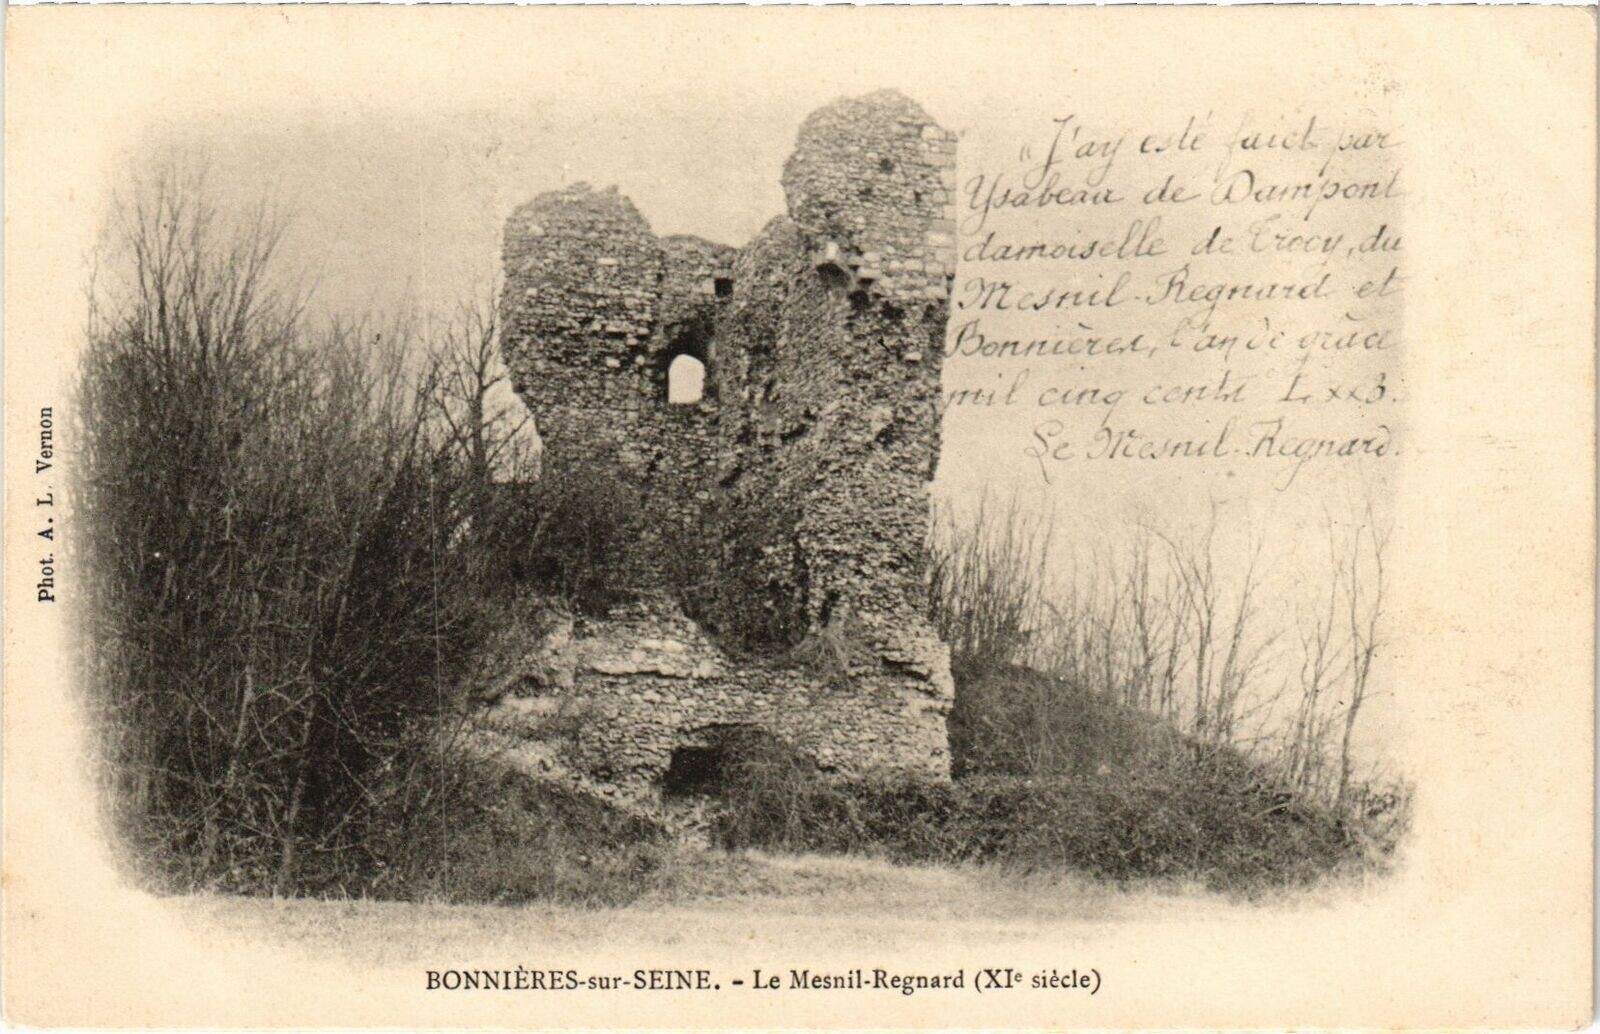 "J'ay esté faict par
Ysabeau de Dampont
damoiselle de Crocy, du
Mesnil-Regnard et
Bonnières, l'an de grâce
mil cinq cents Lxx3.
Le Mesnil-Regnard.
Phot. A. L. Vernon
BONNIÈRES-sur-SEINE. - Le Mesnil-Regnard (XIe siècle)